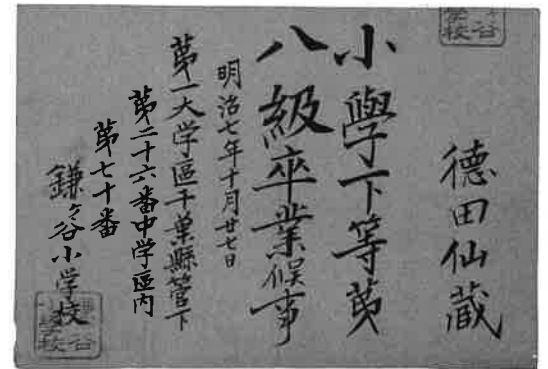 徳田仙蔵
小學下等第
八級卒業候事
明治七年十月廿七日
第一大学區千葉縣管下
第二十六番中学區内
第七十番
鎌ヶ谷小学校